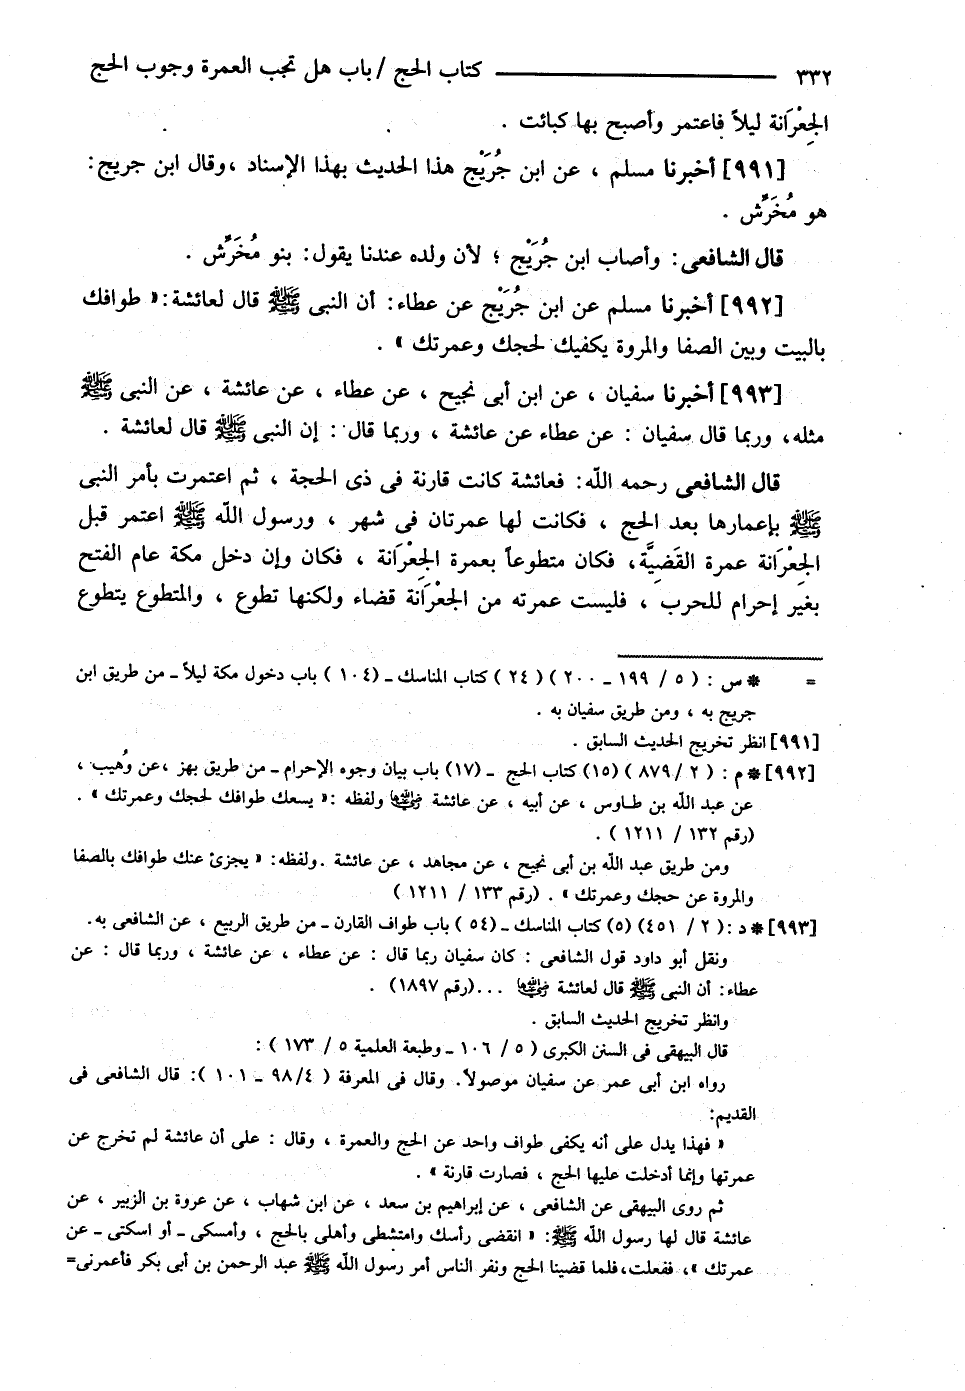 ٣٣٢ ــــــــــــــــ كتاب الحج / باب هل تجب العمرة وجوب الحج
الجِعْرَانة ليلاً فاعتمر وأصبح بها كبائت .
[٩٩١] أخبرنا مسلم ، عن ابن جُرَيْج هذا الحديث بهذا الإسناد ، وقال ابن جريج :
هو مُخَرِّش .
قال الشافعى : وأصاب ابن جُرَيْج ؛ لأن ولده عندنا يقول : بنو مُخَرِّش .
[٩٩٢] أخبرنا مسلم عن ابن جُرَيْج عن عطاء : أن النبى ﷺ قال لعائشة : « طوافك
بالبيت وبين الصفا والمروة يكفيك لحجك وعمرتك » .
[٩٩٣] أخبرنا سفيان ، عن ابن أبى نجيح ، عن عطاء ، عن عائشة ، عن النبى ﷺ
مثله، وربما قال سفيان : عن عطاء عن عائشة ، وربما قال : إن النبى ﷺ قال لعائشة .
قال الشافعى رحمه الله : فعائشة كانت قارنة فى ذى الحجة ، ثم اعتمرت بأمر النبى
ﷺ بإعمارها بعد الحج ، فكانت لها عمرتان فى شهر ، ورسول الله ﷺ اعتمر قبل
الجِعْرَانة عمرة القَضِيَّة، فكان متطوعاً بعمرة الجِعْرَانة ، فكان وإن دخل مكة عام الفتح
بغير إحرام للحرب ، فليست عمرته من الجِعْرَانة قضاء ولكنها تطوع ، والمتطوع يتطوع
= * س : ( ٥ / ١٩٩ ـ ٢٠٠ ) ( ٢٤ ) كتاب المناسك ـ (١٠٤) باب دخول مكة ليلاً ـ من طريق ابن
جريج به ، ومن طريق سفيان به .
[٩٩١] انظر تخريج الحديث السابق .
[٩٩٢] * م : ( ٢ / ٨٧٩ ) (١٥) كتاب الحج ـ (١٧) باب بيان وجوه الإحرام ـ من طريق بهز ، عن وُهيب ،
عن عبد الله بن طاوس ، عن أبيه ، عن عائشة رضي الله عنها ولفظه : « يسعك طوافك لحجك وعمرتك » .
(رقم ١٣٢ / ١٢١١ ) .
ومن طريق عبد الله بن أبى نجيح ، عن مجاهد ، عن عائشة . ولفظه : « يجزئ عنك طوافك بالصفا
والمروة عن حجك وعمرتك » . (رقم ١٣٣ / ١٢١١ )
[٩٩٣] * د : ( ٢ / ٤٥١) (٥) كتاب المناسك ـ (٥٤ ) باب طواف القارن ـ من طريق الربيع ، عن الشافعى به.
ونقل أبو داود قول الشافعى : كان سفيان ربما قال : عن عطاء ، عن عائشة ، وربما قال : عن
عطاء : أن النبى ﷺ قال لعائشة رضي الله عنها ...(رقم ١٨٩٧) .
وانظر تخريج الحديث السابق .
قال البيهقى فى السنن الكبرى ( ٥ / ١٠٦ ـ وطبعة العلمية ٥ / ١٧٣ ) :
رواه ابن أبى عمر عن سفيان موصولاً. وقال فى المعرفة ( ٤/ ٩٨ ـ ١٠١ ): قال الشافعى فى
القديم :
« فهذا يدل على أنه يكفى طواف واحد عن الحج والعمرة ، وقال : على أن عائشة لم تخرج عن
عمرتها وإنما أدخلت عليها الحج ، فصارت قارنة » .
ثم روى البيهقى عن الشافعى ، عن إبراهيم بن سعد ، عن ابن شهاب ، عن عروة بن الزبير ، عن
عائشة قال لها رسول الله ﷺ : « انقضى رأسك وامتشطى وأهلى بالحج ، وأمسكى ـ أو اسكتى ـ عن
عمرتك »، ففعلت، فلما قضينا الحج ونفر الناس أمر رسول الله ﷺ عبد الرحمن بن أبى بكر فأعمرنى =